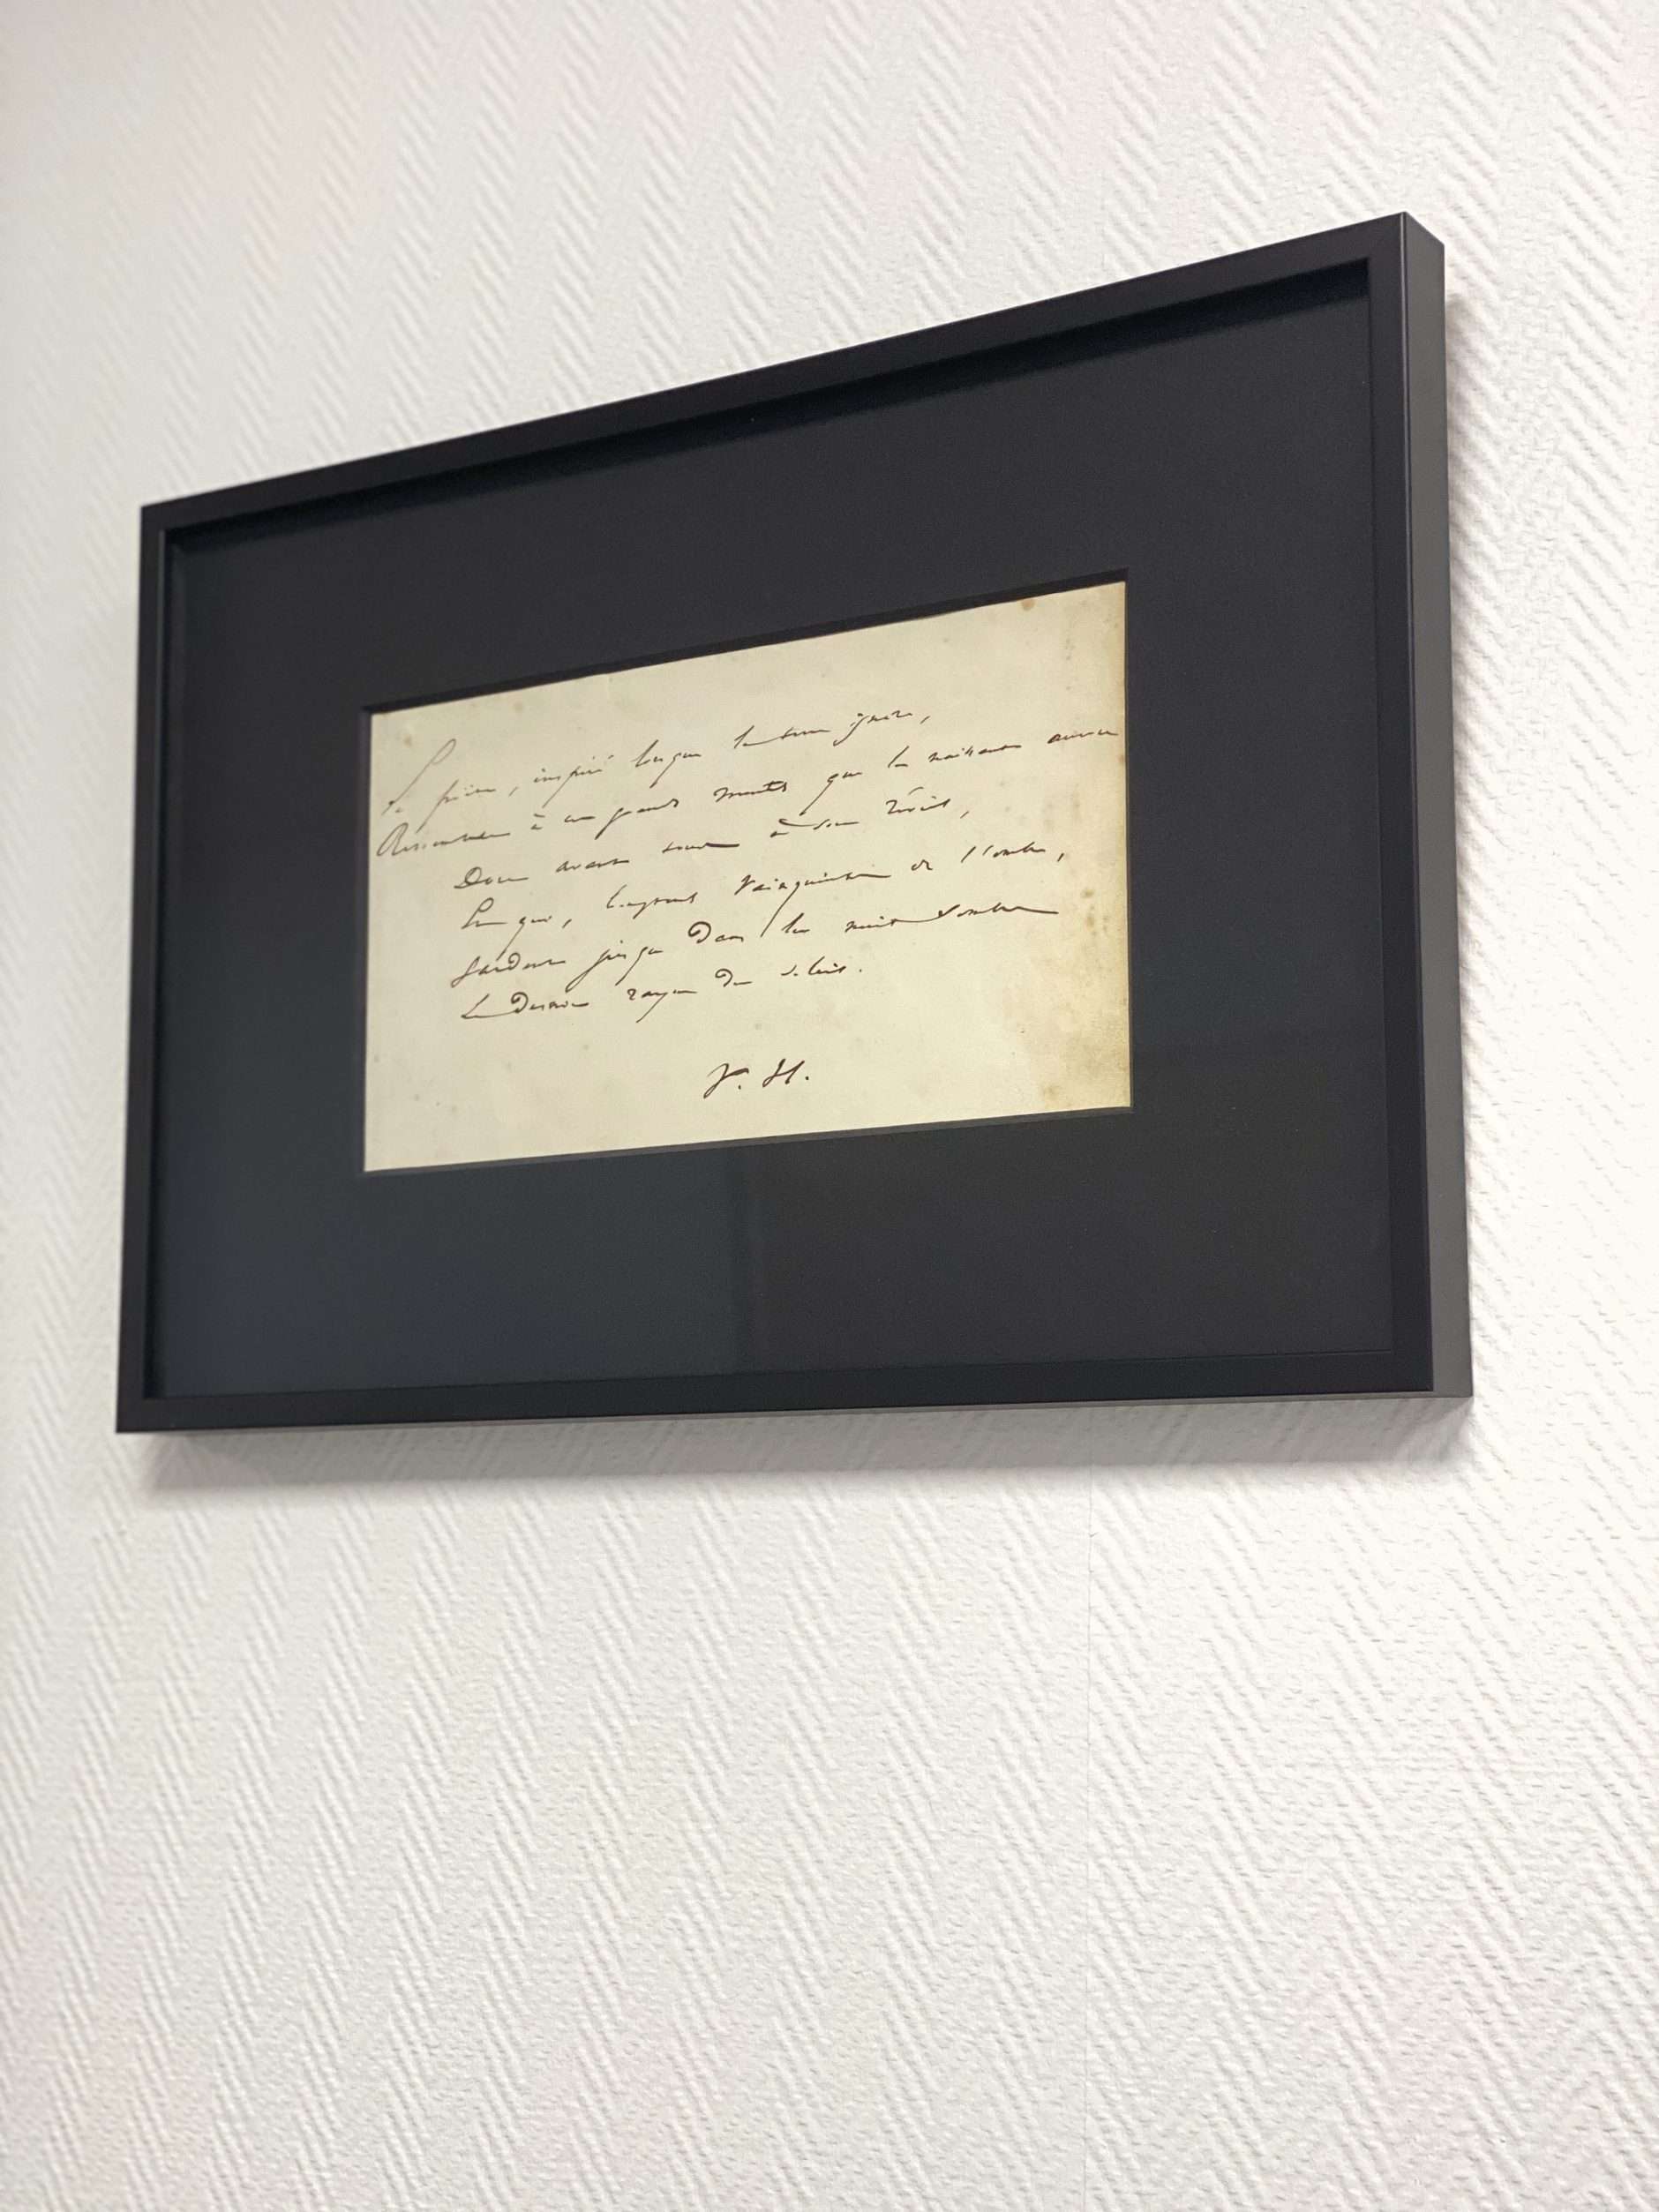 Le poëte, inspiré lorsque la terre ignore,
Ressemble à ces grands monts que la naissante aurore
Dore avant tous à son réveil,
Et qui, longtemps vainqueurs de l'ombre,
Gardent jusque dans la nuit sombre
Le dernier rayon du soleil.
V. H.